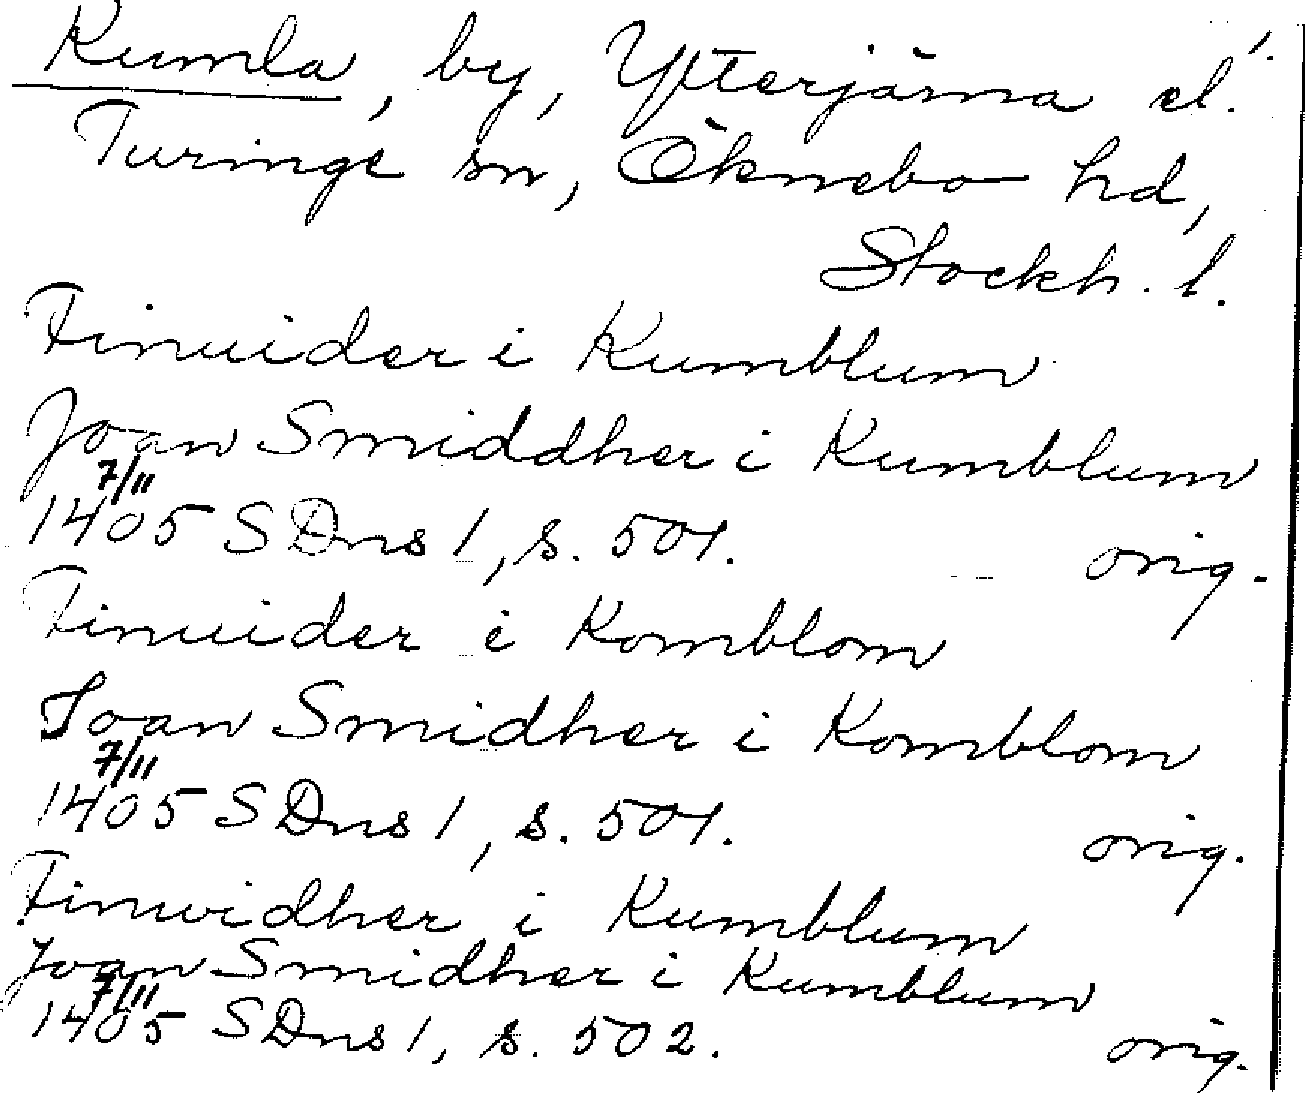 Kumla, by, Ytterjärna el.
Turinge sn, Öknebo hd,
Stockh. l.
Finuider i Kumblum
Joan Smiddher i Kumblum
7/11
1405 SDns 1, s. 501. orig.
Finuider i Komblom
Joan Smidher i Komblom
7/11
1405 SDns 1, s. 501. orig.
Finwidher i Kumblum
Joan Smidher i Kumblum
7/11
1405 SDns 1, s. 502. orig.